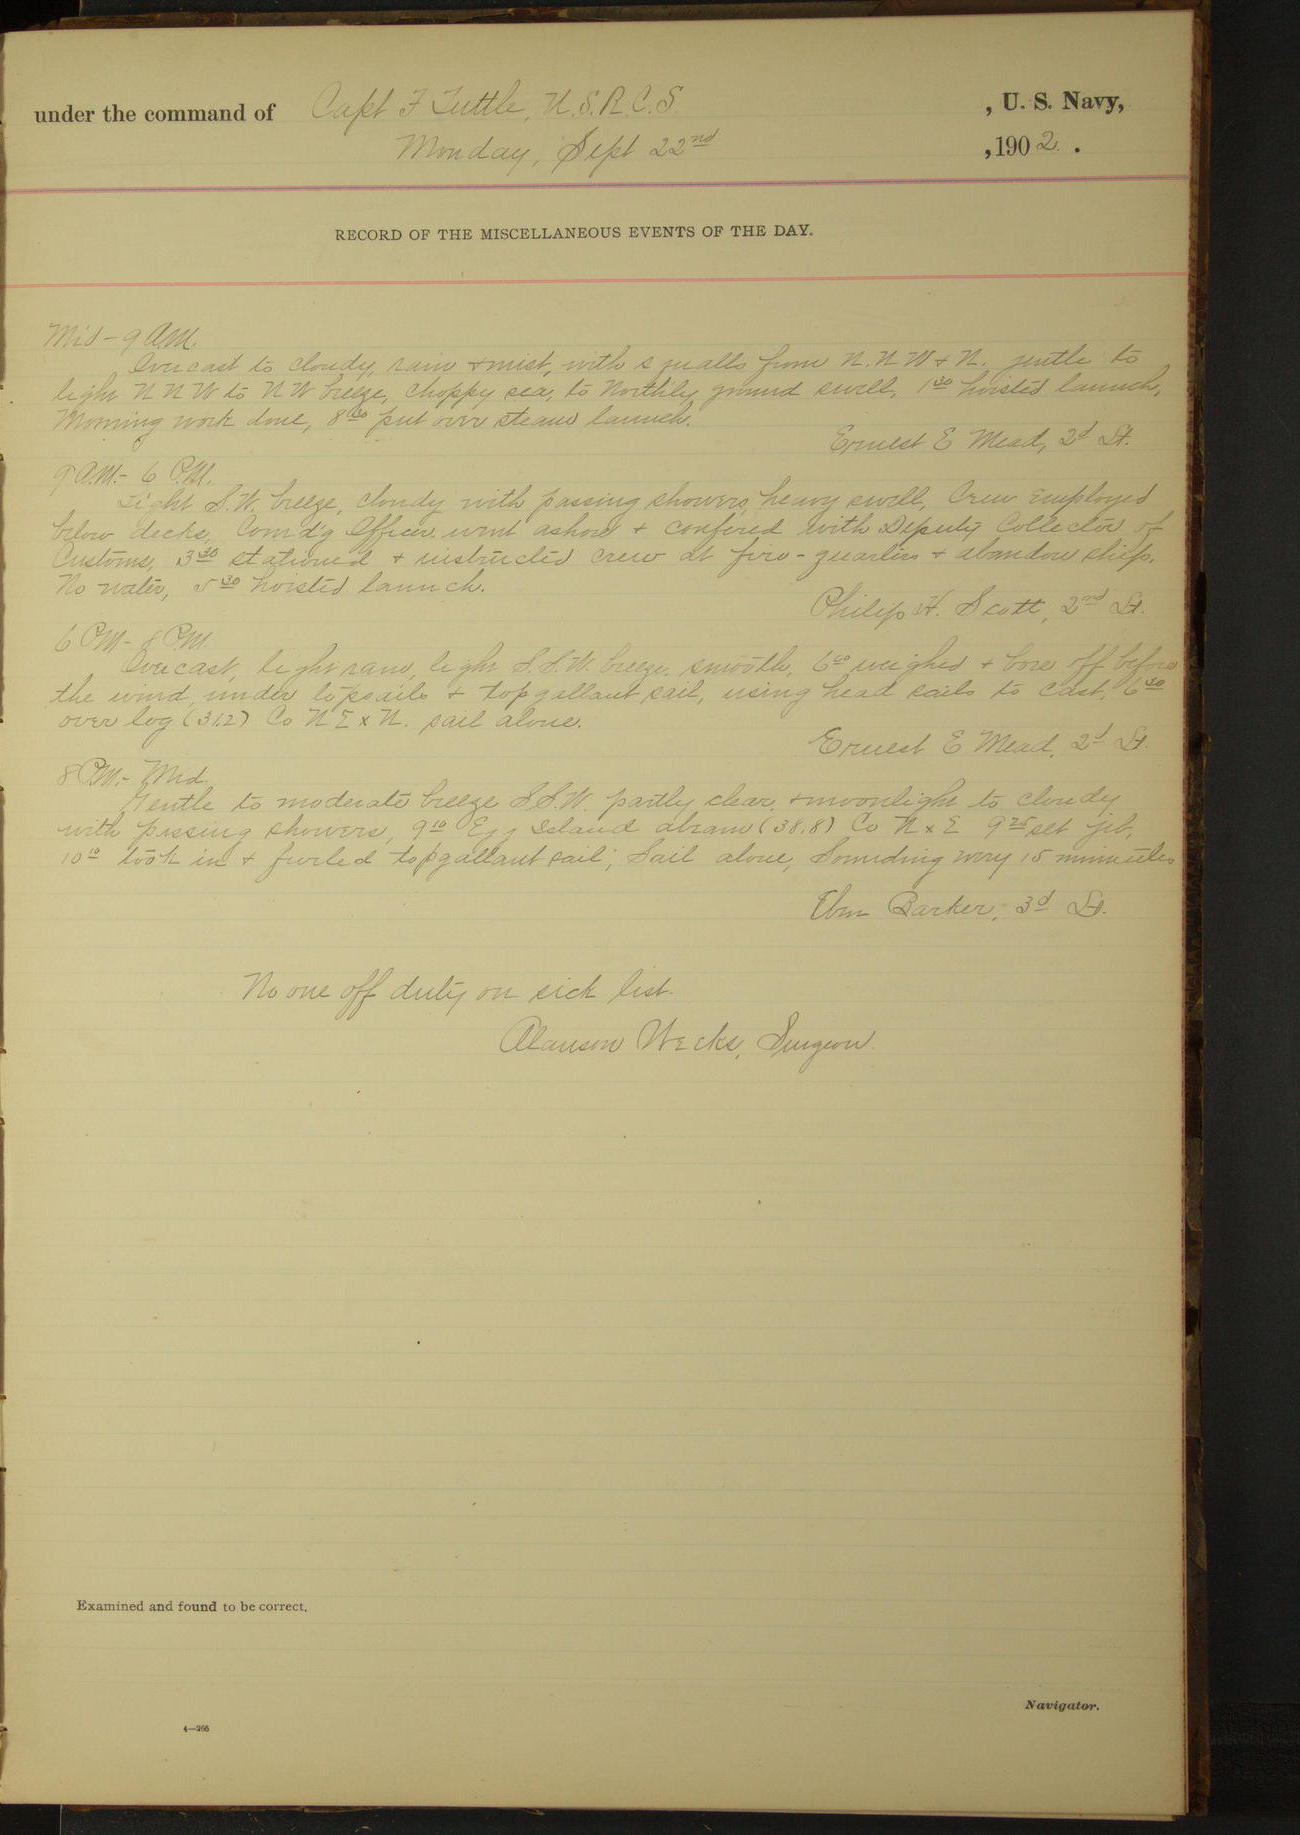 under the command of Capt F Tuttle, U.S.R.C.S , U. S. Navy,
Monday, Sept 22nd , 1902 .
RECORD OF THE MISCELLANEOUS EVENTS OF THE DAY.
Mid - 9 A.M.
Overcast to cloudy, rain & mist, with squalls from N.N.W & N. gentle to
light N N W to N W breeze, choppy sea, to Northily ground swell, 1 30 hoisted launch,
Morning work done, 8 30 put over steam launch.
Ernest E Mead, 2d Lt.
9 A.M. - 6 P.M.
Light S.W. breeze, cloudy with passing showers, heavy swell, Crew employed
below decks, Comd'g Officer went ashore & confered with Deputy Collector of
Customs, 3 30 stationed & instructed crew at fire-quarters & abandon ship.
No water, 5 30 hoisted launch.
Philip H. Scott, 2nd Lt.
6 PM - 8 P.M.
Overcast, light rain, light S.S.W. breeze, smooth, 6 00 weighed & bore off before
the wind, under topsails & topgallant sail, using head sails to cast, 6 30
over log (31.2) Co N E x N. sail alone.
Ernest E Mead, 2d Lt.
8 P.M. - Mid.
Gentle to moderate breeze S.S.W. partly clear, & moonlight to cloudy
with passing showers, 9 10 Egg Island abeam (38.8) Co N x E 9 25 set jib,
10 10 took in & furled topgallant sail; Sail alone, Sounding every 15 minutes
Eben Barker, 3d Lt.
No one off duty on sick list.
Alanson Weeks, Surgeon.
Examined and found to be correct.
Navigator.